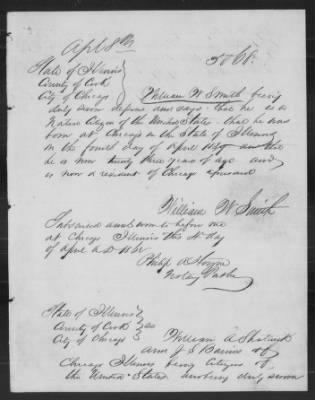 Apl 8th
State of Illinois
County of Cook
City of Chicago
William W Smith being
duly sworn deposes and says that he is a
Native Citizen of the United States that he was
born at Chicago in the State of Illinois
on the fourth day of April
he is now twenty three years of age and
is now a resident of Chicago aforesaid
William W Smith
Subscribed and sworn to before me
at Chicago Illinois this 4th day
of April A.D.
Philip A Hoyne
Notary Public
State of Illinois
County of Cook ss
City of Chicago
William A
and J S
Chicago Illinois being Citizens of
the United States and being duly sworn